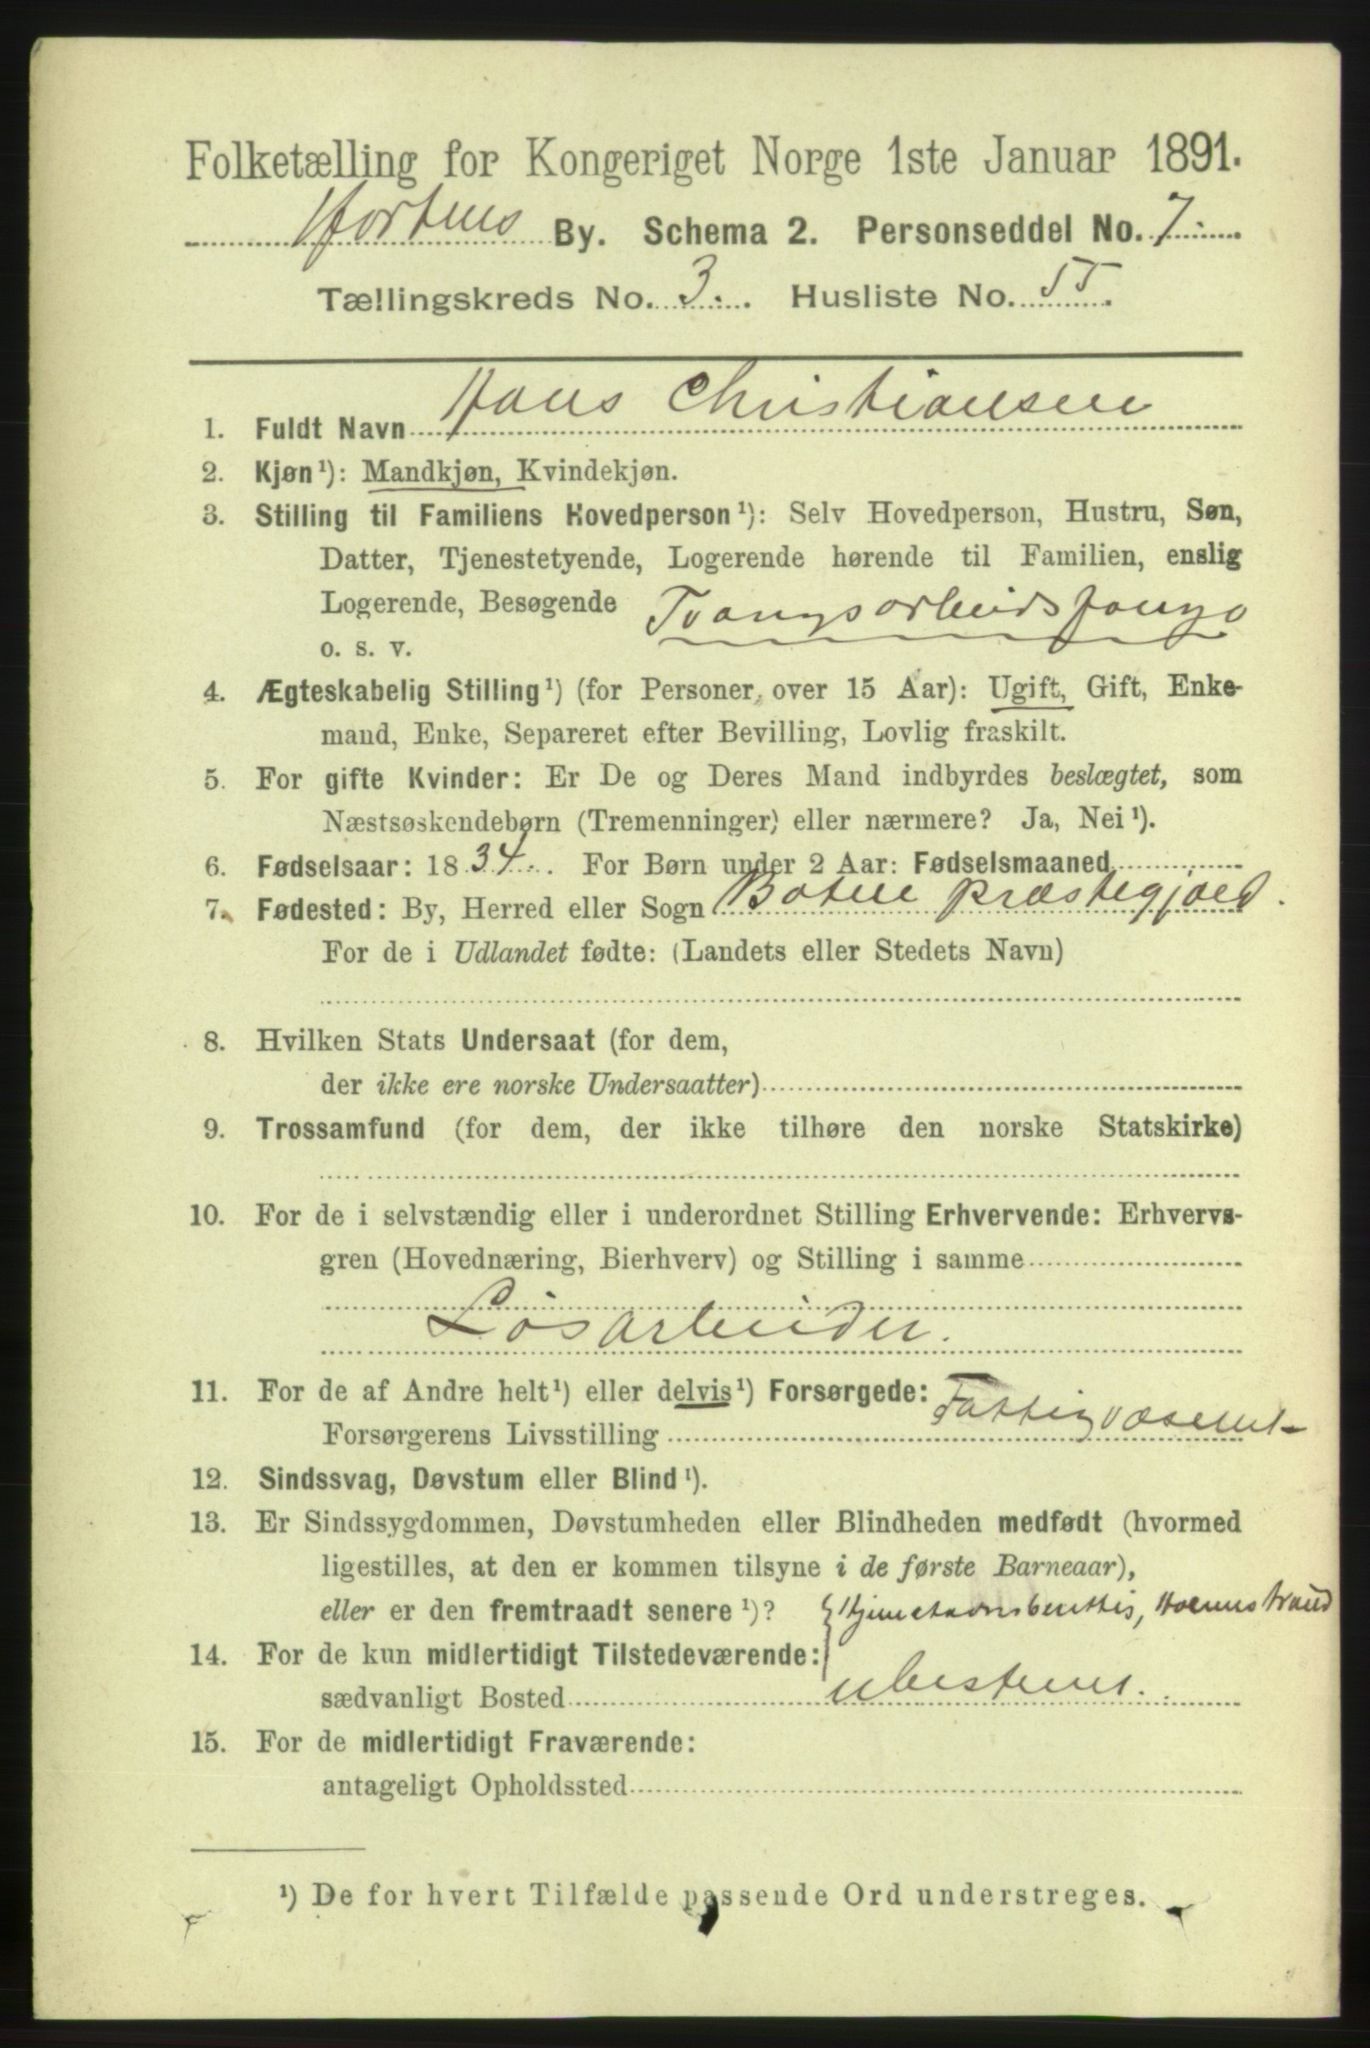 Folketælling for Kongeriget Norge 1ste Januar 1891.
Hortens By. Schema 2. Personseddel No. 7.
Tællingskreds No. 3. Husliste No. 55.
1. Fuldt Navn Hans Christiansen
2. Kjøn¹): Mandkjøn, Kvindekjøn.
3. Stilling til Familiens Hovedperson¹): Selv Hovedperson, Hustru, Søn,
Datter, Tjenestetyende, Logerende hørende til Familien, enslig
Logerende, Besøgende Tvangsarbeidsfange
o. s. v.
4. Ægteskabelig Stilling¹) (for Personer over 15 Aar): Ugift, Gift, Enke-
mand, Enke, Separeret efter Bevilling, Lovlig fraskilt.
5. For gifte Kvinder: Er De og Deres Mand indbyrdes beslægtet, som
Næstsøskendebørn (Tremenninger) eller nærmere? Ja, Nei¹).
6. Fødselsaar: 1834. For Børn under 2 Aar: Fødselsmaaned
7. Fødested: By, Herred eller Sogn Botne Præstegjæld.
For de i Udlandet fødte: (Landets eller Stedets Navn)
8. Hvilken Stats Undersaat (for dem,
der ikke ere norske Undersaatter)
9. Trossamfund (for dem, der ikke tilhøre den norske Statskirke)
10. For de i selvstændig eller i underordnet Stilling Erhvervende: Erhvervs-
gren (Hovednæring, Bierhverv) og Stilling i samme
Løsarbeider.
11. For de af Andre helt¹) eller delvis¹) Forsørgede:
Forsørgerens Livsstilling Fattigvæsenet
12. Sindssvag, Døvstum eller Blind¹).
13. Er Sindssygdommen, Døvstumheden eller Blindheden medfødt (hvormed
ligestilles, at den er kommen tilsyne i de første Barneaar),
eller er den fremtraadt senere¹)? Hjemstavnsberettig, Holmestrand
14. For de kun midlertidigt Tilstedeværende:
sædvanligt Bosted ubestemt.
15. For de midlertidigt Fraværende:
antageligt Opholdssted
¹) De for hvert Tilfælde passende Ord understreges.